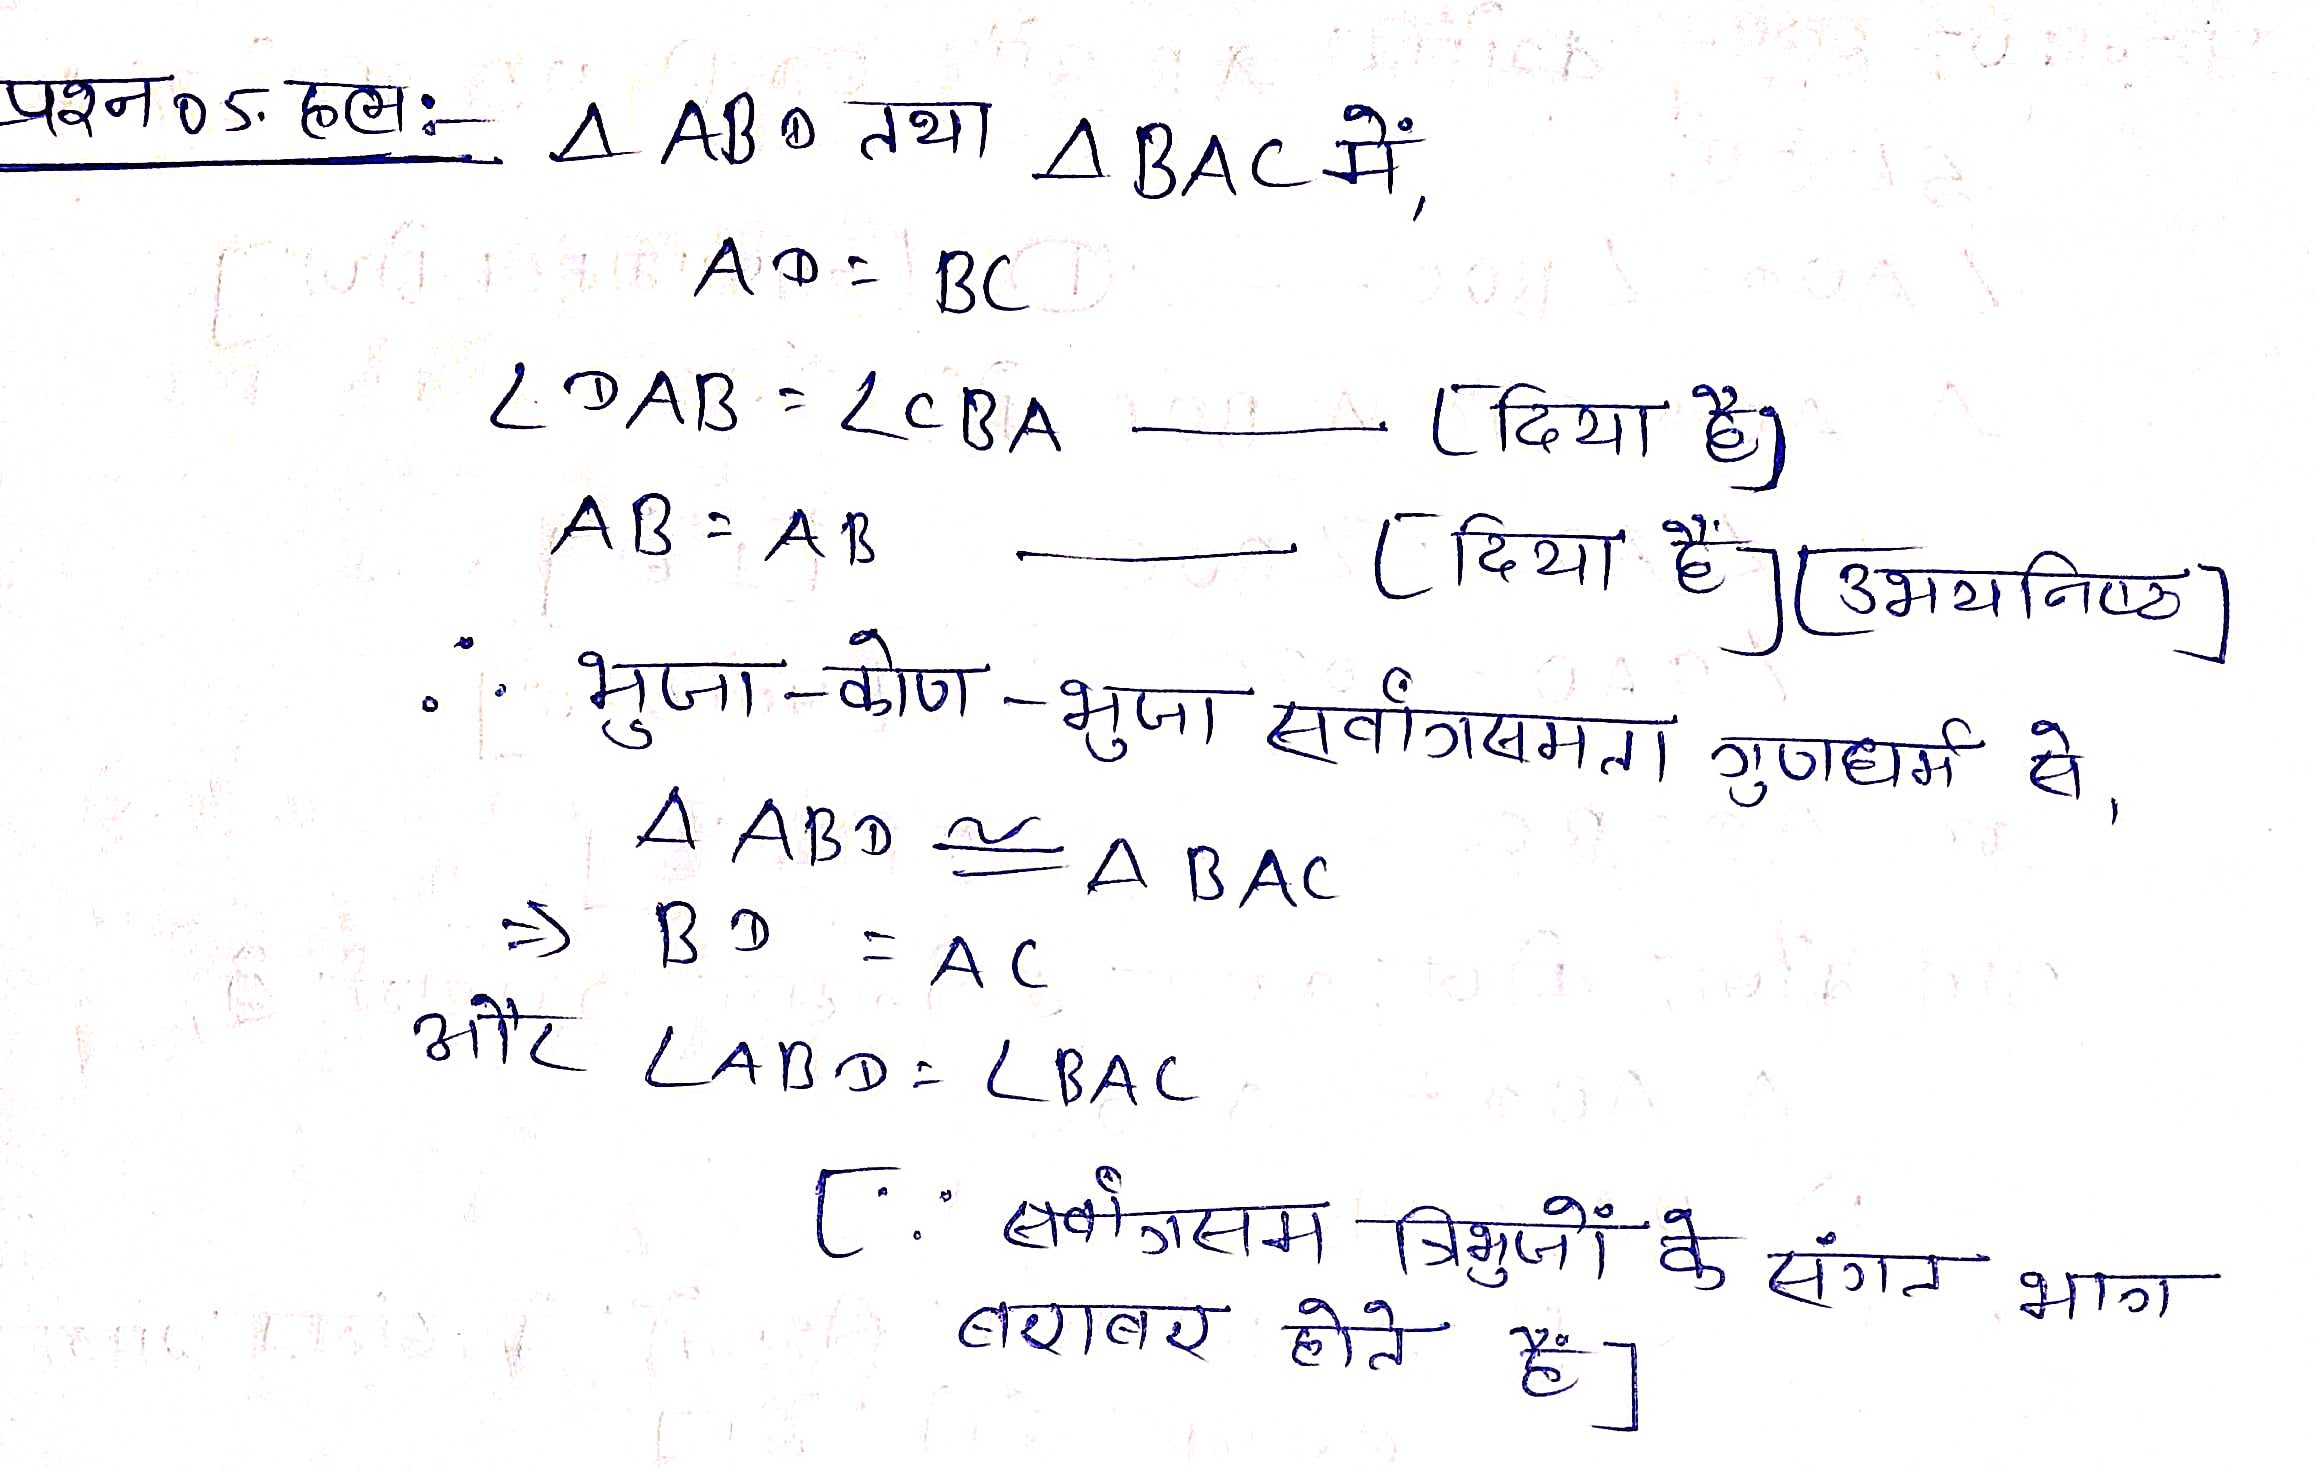 प्रश्न 05. हल :- Δ ABD तथा Δ BAC में,
AD = BC
∠DAB = ∠CBA —— [दिया है]
AB = AB —— [दिया है] [उभयनिष्ठ]
∴ भुजा - कोण - भुजा सर्वांगसमता गुणधर्म से,
Δ ABD ≅ Δ BAC
⇒ BD = AC
और ∠ABD = ∠BAC
[∵ सर्वांगसम त्रिभुजों के संगत भाग
बराबर होते हैं]